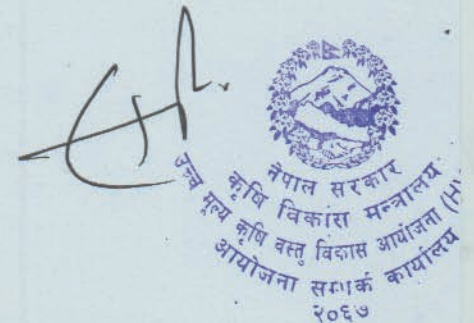 नेपाल सरकार
कृषि विकास मन्त्रालय
उच्च मूल्य कृषि वस्तु विकास आयोजना (H
आयोजना सम्पर्क कार्यालय
२०६७